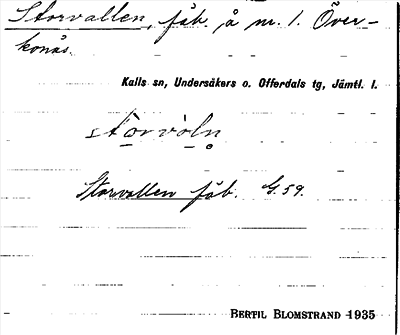 Storvallen, fäb. å nr. 1. Över-
konäs.
Kalls sn, Undersåkers o. Offerdals tg, Jämtl. l.
stọrvòln̥
Storvallen fäb. G.59.
BERTIL BLOMSTRAND 1935